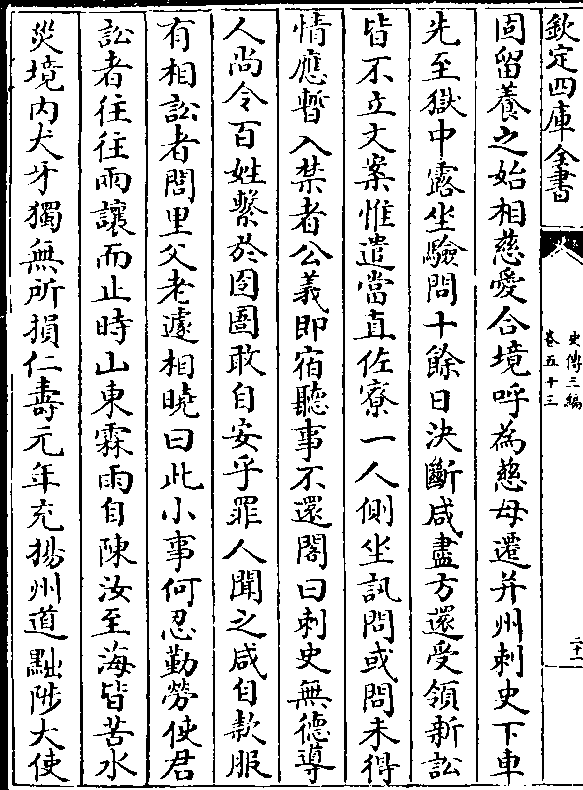 欽定四庫全書
史傳三編
卷五十三
二十一
固留養之始相慈愛合境呼為慈母遷并州刺史下車
先至獄中露坐驗問十餘日決斷咸盡方還受領新訟
皆不立文案惟遣當直佐寮一人側坐訊問或問未得
情應暫入禁者公義即宿聽事不還閤曰刺史無德導
人尚令百姓繫於囹圄敢自安乎罪人聞之咸自款服
有相訟者閭里父老遽相曉曰此小事何忍勤勞使君
訟者往往兩讓而止時山東霖雨自陳汝至海皆苦水
災境內犬牙獨無所損仁壽元年充揚州道黜陟大使